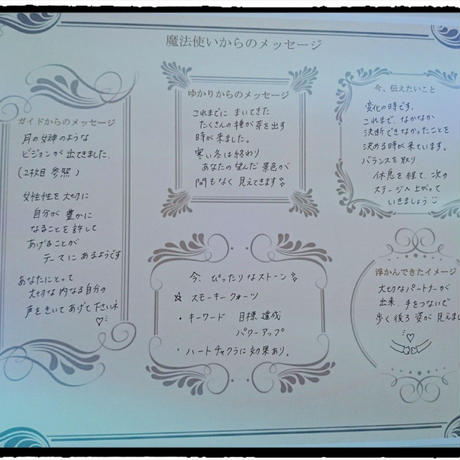 魔法使いからのメッセージ
ガイドからのメッセージ
月の女神のような
ビジョンが出てきました
(2枚目 参照)
女性性を大切に
自分が 豊かに
なることを 許して
あげることが
テーマに あるようです
あなたにとって
大切な 内なる自分の
声をきいて あげて 下さいネ
ゆかりからのメッセージ
これまでに まいてきた
たくさんの種が芽を出す
時が来ました。
寒い冬は終わり
あなたの望んだ景色が
間もなく 見えてきます
今、伝えたいこと
変化の時です。
これまで、なかなか
決断できなかったことを
決める時が来ています。
バランスを取り
休息を経て、次の
ステージへ上がって
いきましょう
今、ぴったりなストーン
☆ スモーキークォーツ
・キーワード 目標達成
パワーアップ
・ハートチャクラに効果あり。
浮かんできたイメージ
大切なパートナーが
出来、手をつないで
歩く後ろ姿が見えました